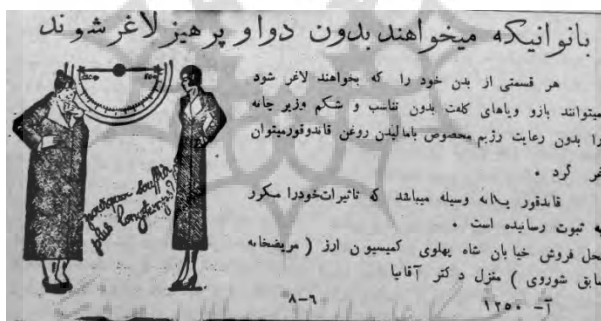 بانوانیکه میخواهند بدون دوا و پرهیز لاغر شوند
هر قسمتی از بدن خود را که بخواهند لاغر شود
میتوانند بازو وپاهای کلفت بدون تناسب و شکم وزیر چانه
را بدون رعایت رژیم مخصوص بامالیدن روغن قاندوقورمیتوان
غر کرد .
قاندقور یگانه وسیله میباشد که تاثیرات خودرا مکرر
به ثبوت رسانیده است .
محل فروش خیابان شاه پهلوی کمیسیون ارز ( مریضخانه
سابق شوروی ) منزل دکتر آقابیا
آ- ۱۲۵۰
۸-۶
pourquoi souffrir
plus longtemps?